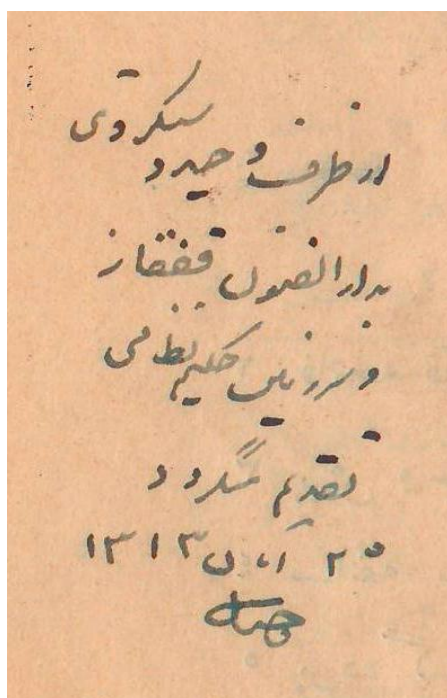 از طرف وحید دستگردی
بدارالفنون قفقاز
و سرزمین حکیم نظامی
تقدیم میگردد
۲۵ آبان ۱۳۱۳